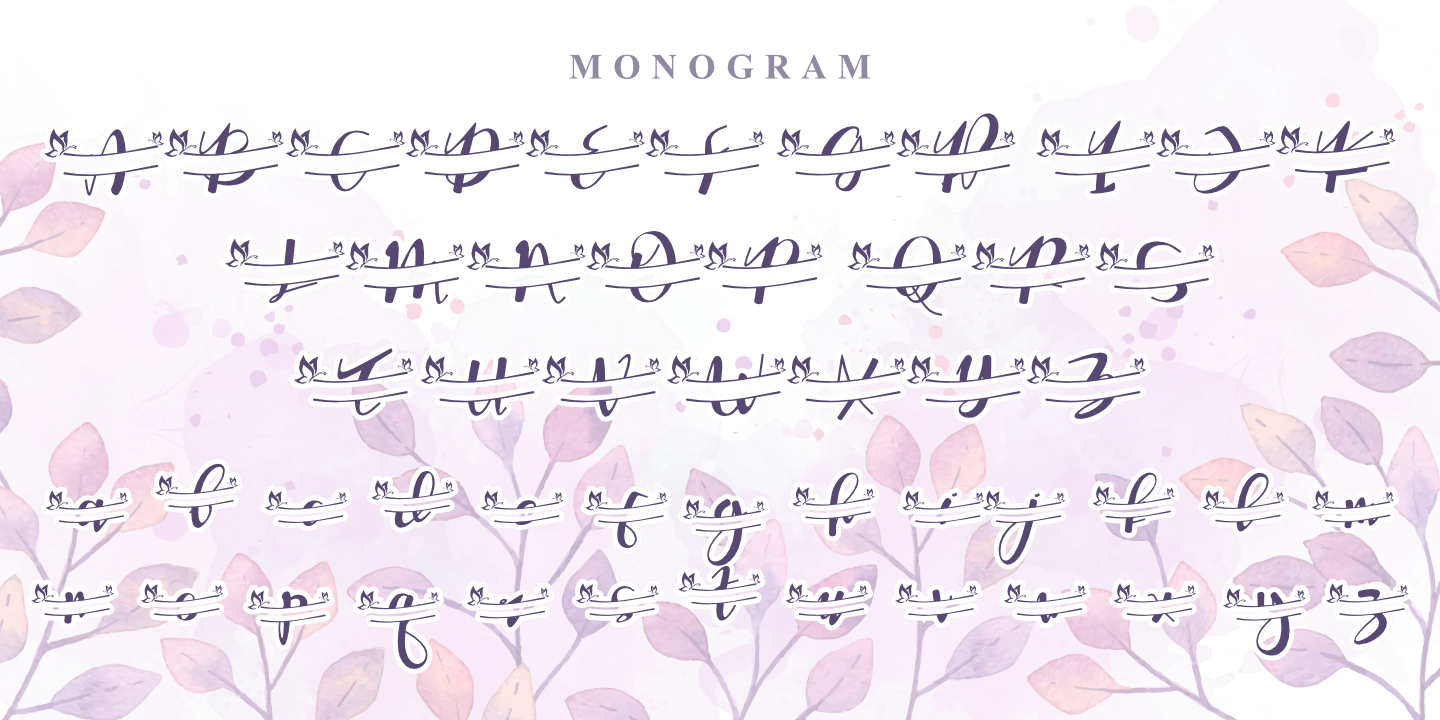 MONOGRAM
A B C D E F G H I J K
L M N O P Q R S
T U V W X Y Z
a b c d e f g h i j k l m
n o p q r s t u v w x y z